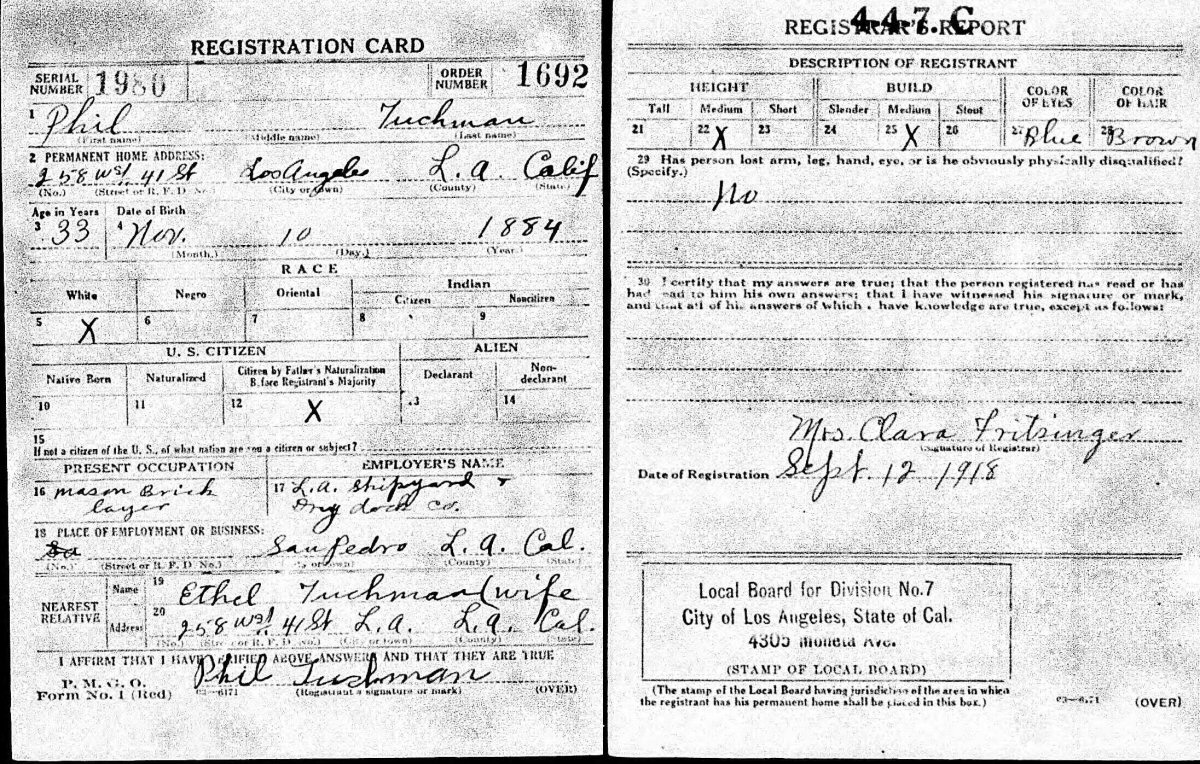 REGISTRATION CARD
SERIAL NUMBER 1980 ORDER NUMBER 1692
1 Phil Tuchman
(First name) (Middle name) (Last name)
2 PERMANENT HOME ADDRESS:
258 Wst 41 St Los Angeles L.A. Calif
(No.) (Street or R. F. D. No.) (City or town) (County) (State)
Age in Years Date of Birth
3 33 4 Nov. 10 1884
(Month.) (Day.) (Year.)
RACE
White Negro Oriental Indian
Citizen Noncitizen
5 X 6 7 8 9
U. S. CITIZEN ALIEN
Native Born Naturalized Citizen by Father's Naturalization Before Registrant's Majority Declarant Non-declarant
10 11 12 X 13 14
15
If not a citizen of the U. S., of what nation are you a citizen or subject?
PRESENT OCCUPATION EMPLOYER'S NAME
16 Mason Brick 17 L.A. Shipyard +
layer Dry dock Co.
18 PLACE OF EMPLOYMENT OR BUSINESS:
San Pedro L.A. Cal.
(No.) (Street or R. F. D. No.) (City or town) (County) (State)
NEAREST RELATIVE
Name 19 Ethel Tuchman (wife
Address 20 258 Wst 41 St L.A. L.A. Cal.
(No.) (Street or R. F. D. No.) (City or town) (County) (State)
I AFFIRM THAT I HAVE VERIFIED ABOVE ANSWERS AND THAT THEY ARE TRUE
P. M. G. O.
Form No. 1 (Red) 03—6171 Phil Tuchman
(Registrant's signature or mark) (OVER)
4-4-7. C
REGISTRAR'S REPORT
DESCRIPTION OF REGISTRANT
HEIGHT BUILD COLOR OF EYES COLOR OF HAIR
Tall Medium Short Slender Medium Stout
21 22 X 23 24 25 X 26 27 Blue 28 Brown
29 Has person lost arm, leg, hand, eye, or is he obviously physically disqualified?
(Specify.)
No
30 I certify that my answers are true; that the person registered has read or has
had read to him his own answers; that I have witnessed his signature or mark,
and that all of his answers of which I have knowledge are true, except as follows:
Mrs. Clara Fritsinger
(Signature of Registrar)
Date of Registration Sept. 12 1918
Local Board for Division No.7
City of Los Angeles, State of Cal.
4305 Moneta Ave.
(STAMP OF LOCAL BOARD)
(The stamp of the Local Board having jurisdiction of the area in which
the registrant has his permanent home shall be placed in this box.)
03—6171 (OVER)